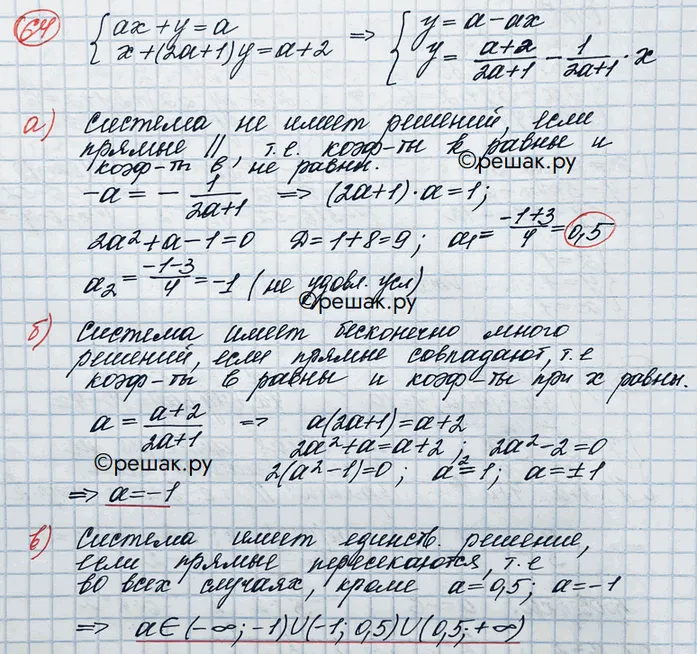 64 { ax + y = a => { y = a - ax
x + (2a+1)y = a+2 y = a+2/2a+1 - 1/2a+1 · x
а) Система не имеет решений, если
прямые //, т.е. коэф-ты k равны и
коэф-ты в, не равны. ©решак.ру
-a = - 1/2a+1 => (2a+1)·a = 1;
2a²+a-1=0 D=1+8=9; a₁= -1+3/4 = 0,5
a₂ = -1-3/4 = -1 (не удовл. усл)
©решак.ру
б) Система имеет бесконечно много
решений, если прямне совпадают, т.е
коэф-ты в равны и коэф-ты при x равны.
a = a+2/2a+1 => a(2a+1)=a+2
2a²+a=a+2; 2a²-2=0
©решак.ру 2(a²-1)=0; a²=1; a=±1
=> a=-1
в) Система имеет единств. решение,
если прямые пересекаются, т.е
во всех случаях, кроме a=0,5; a=-1
=> a∈(-∞;-1)U(-1;0,5)U(0,5;+∞)